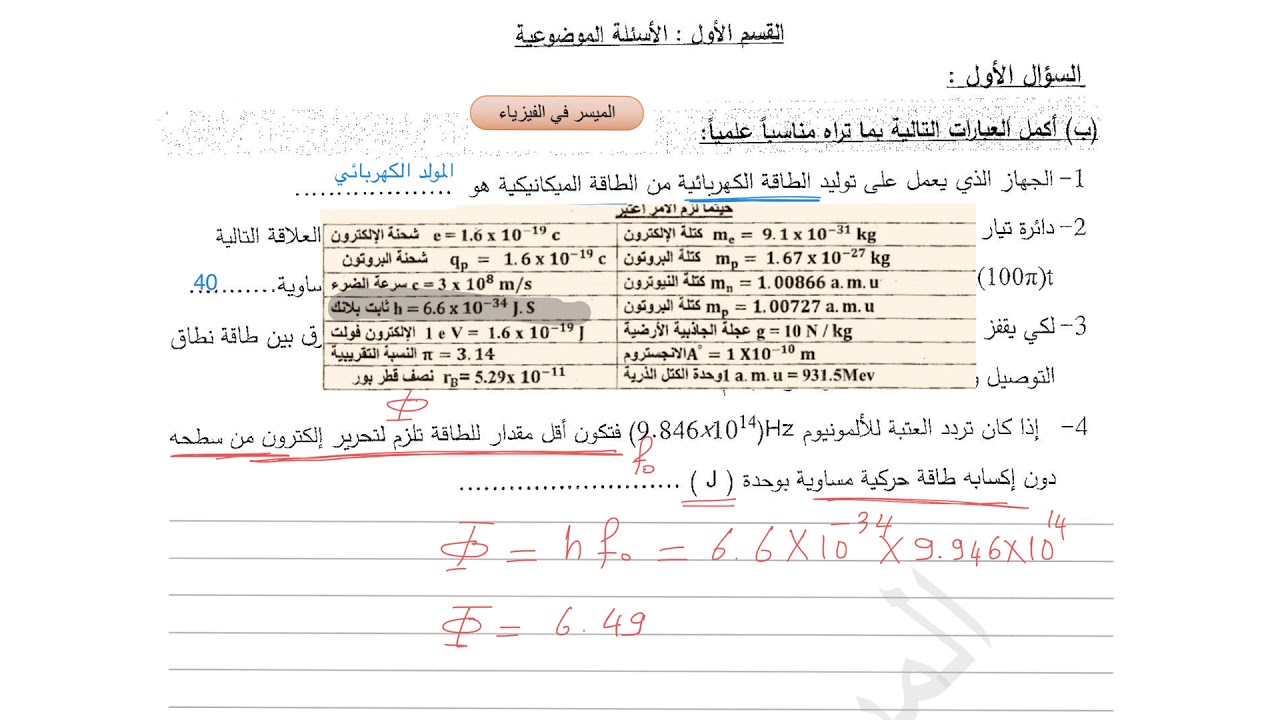 القسم الأول : الأسئلة الموضوعية
السؤال الأول :
الميسر في الفيزياء
(ب) أكمل العبارات التالية بما تراه مناسباً علمياً:
1- الجهاز الذي يعمل على توليد الطاقة الكهربائية من الطاقة الميكانيكية هو ...................
المولد الكهربائي
حينما لزم الامر اعتبر
2- دائرة تيار
العلاقة التالية
(100π)t
ساوية...........
40
كتلة الإلكترون mₑ = 9.1 x 10⁻³¹ kg
شحنة الإلكترون e = 1.6 x 10⁻¹⁹ c
كتلة البروتون mₚ = 1.67 x 10⁻²⁷ kg
شحنة البروتون qₚ = 1.6 x 10⁻¹⁹ c
كتلة النيوترون mₙ = 1.00866 a.m.u
سرعة الضوء c = 3 x 10⁸ m/s
كتلة البروتون mₚ = 1.00727 a.m.u
ثابت بلانك h = 6.6 x 10⁻³⁴ J.S
عجلة الجاذبية الأرضية g = 10 N / kg
الإلكترون فولت 1 e V = 1.6 x 10⁻¹⁹ J
الانجستروم A° = 1 X10⁻¹⁰ m
النسبة التقريبية π = 3.14
وحدة الكتل الذرية 1 a.m.u = 931.5Mev
نصف قطر بور r_B= 5.29x 10⁻¹¹
3- لكي يقفز
رق بين طاقة نطاق
التوصيل و
Φ
4- إذا كان تردد العتبة للألمونيوم (9.846x10¹⁴)Hz فتكون أقل مقدار للطاقة تلزم لتحرير إلكترون من سطحه
f₀
دون إكسابه طاقة حركية مساوية بوحدة ( J ) ...........................
Φ = h f₀ = 6.6 X 10⁻³⁴ X 9.946 X 10¹⁴
Φ = 6.49